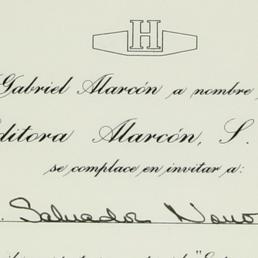 H
Gabriel Alarcón a nombre
Editora Alarcón, S.
se complace en invitar a:
Salvador Novo